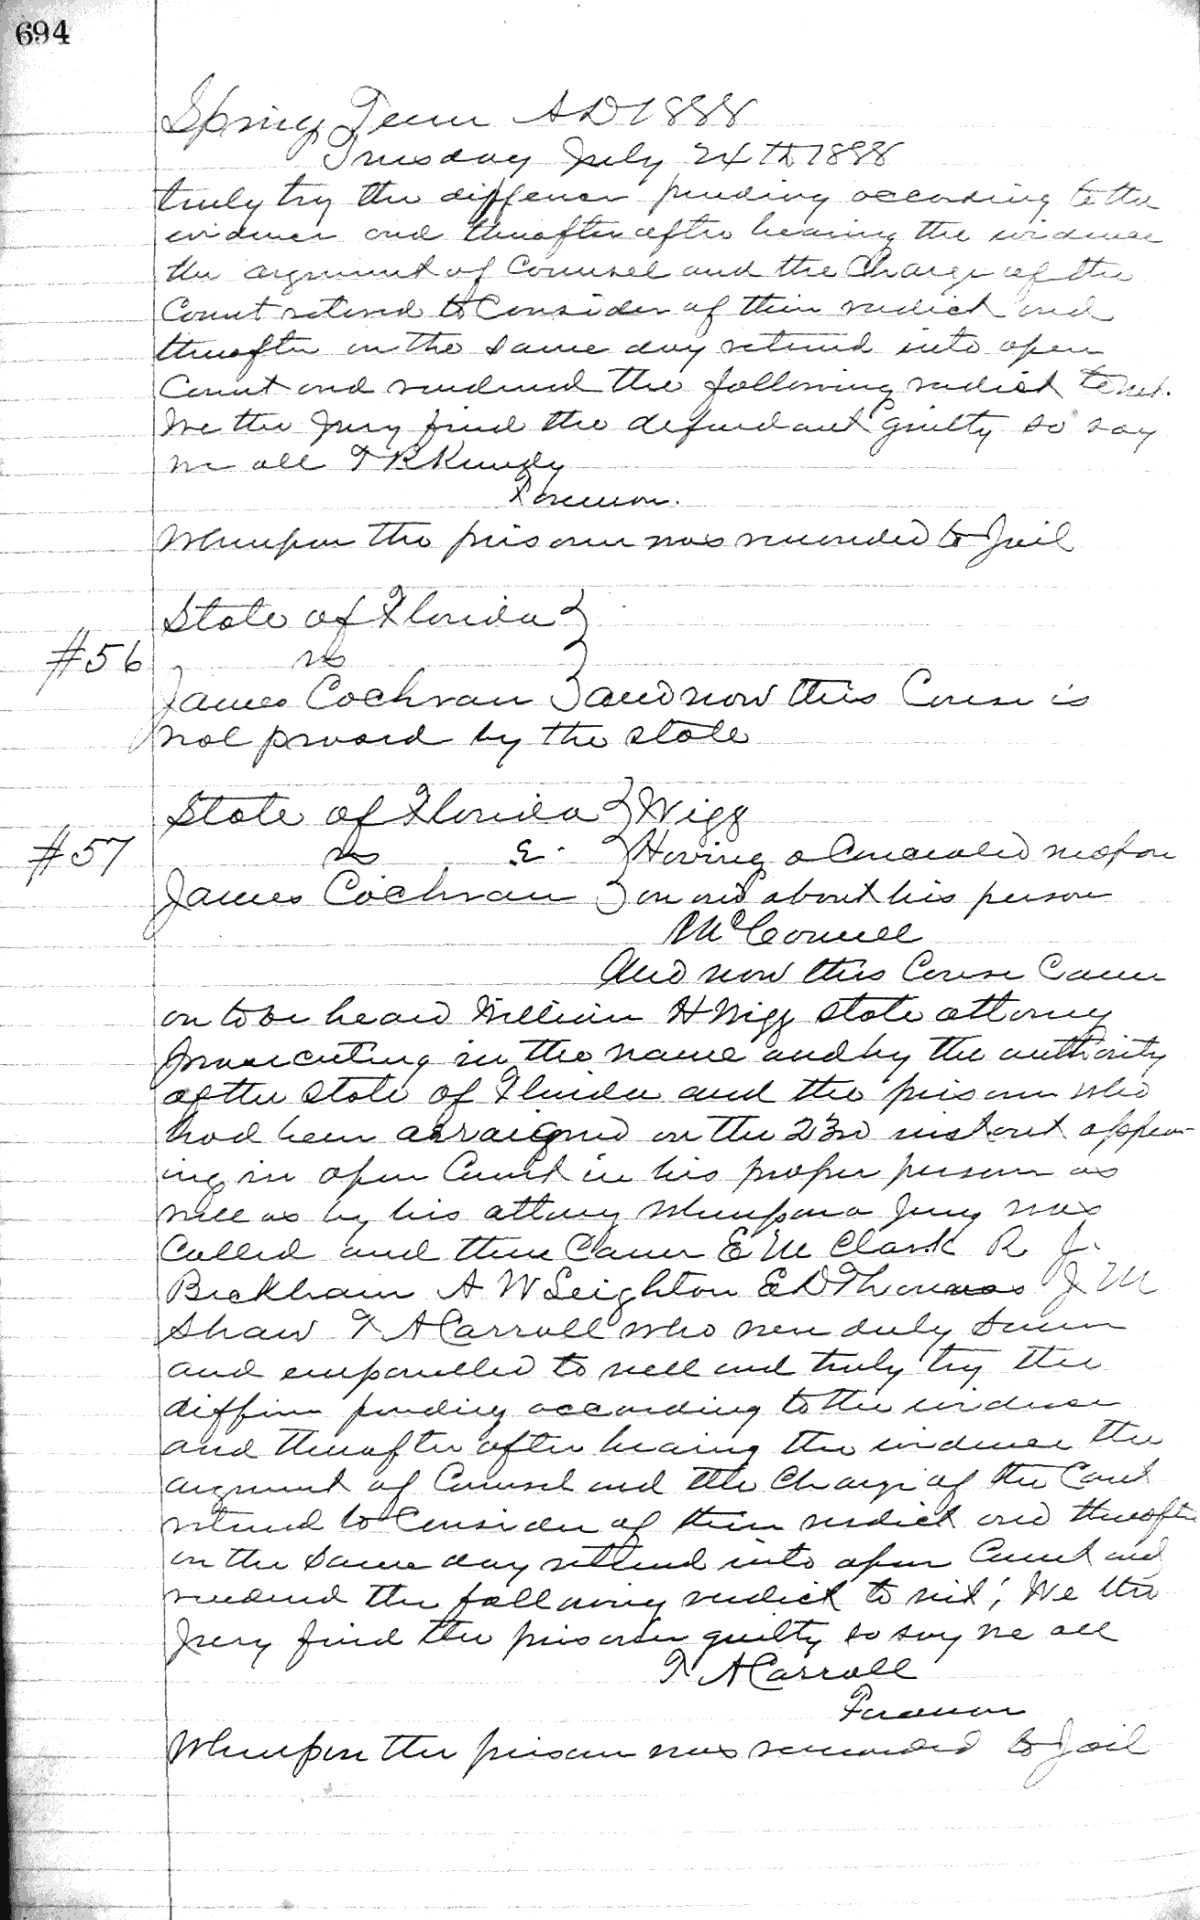 694
Spring Term AD 1888
Tuesday July 24th 1888
truly try the difference pending according to the
evidence and thereafter after hearing the evidence
the argument of counsel and the Charge of the
Court retired to Consider of their verdict and
thereafter on the same day returned into open
Court and rendered the following verdict to wit.
We the Jury find the defendant guilty so say
we all
Foreman.
Whereupon the prisoner was remanded to Jail
State of Florida }
#56 vs }
James Cochran } and now this Cause is
nol prossed by the state
State of Florida } Wigg
#57 vs & } Having a Concealed weapon
James Cochran } on and about his person
McConnell
And now this Cause Came
on to be heard William H Wigg State attorney
prosecuting in the name and by the authority
of the State of Florida and the prisoner who
had been arraigned on the 23rd instant appear-
ing in open Court in his proper person as
well as by his attorney Whereupon a Jury was
Called and then Came E M Clark R J.
Beckham A W Leighton E D Thomas J M
Shaw T A Carroll who were duly sworn
and empanelled to well and truly try the
difference pending according to the evidence
and thereafter after hearing the evidence the
argument of Counsel and the Charge of the Court
retired to Consider of their verdict and thereafter
on the same day returned into open Court and
rendered the following verdict to wit; We the
Jury find the prisoner guilty so say we all
T A Carroll
Foreman
Whereupon the prisoner was remanded to Jail